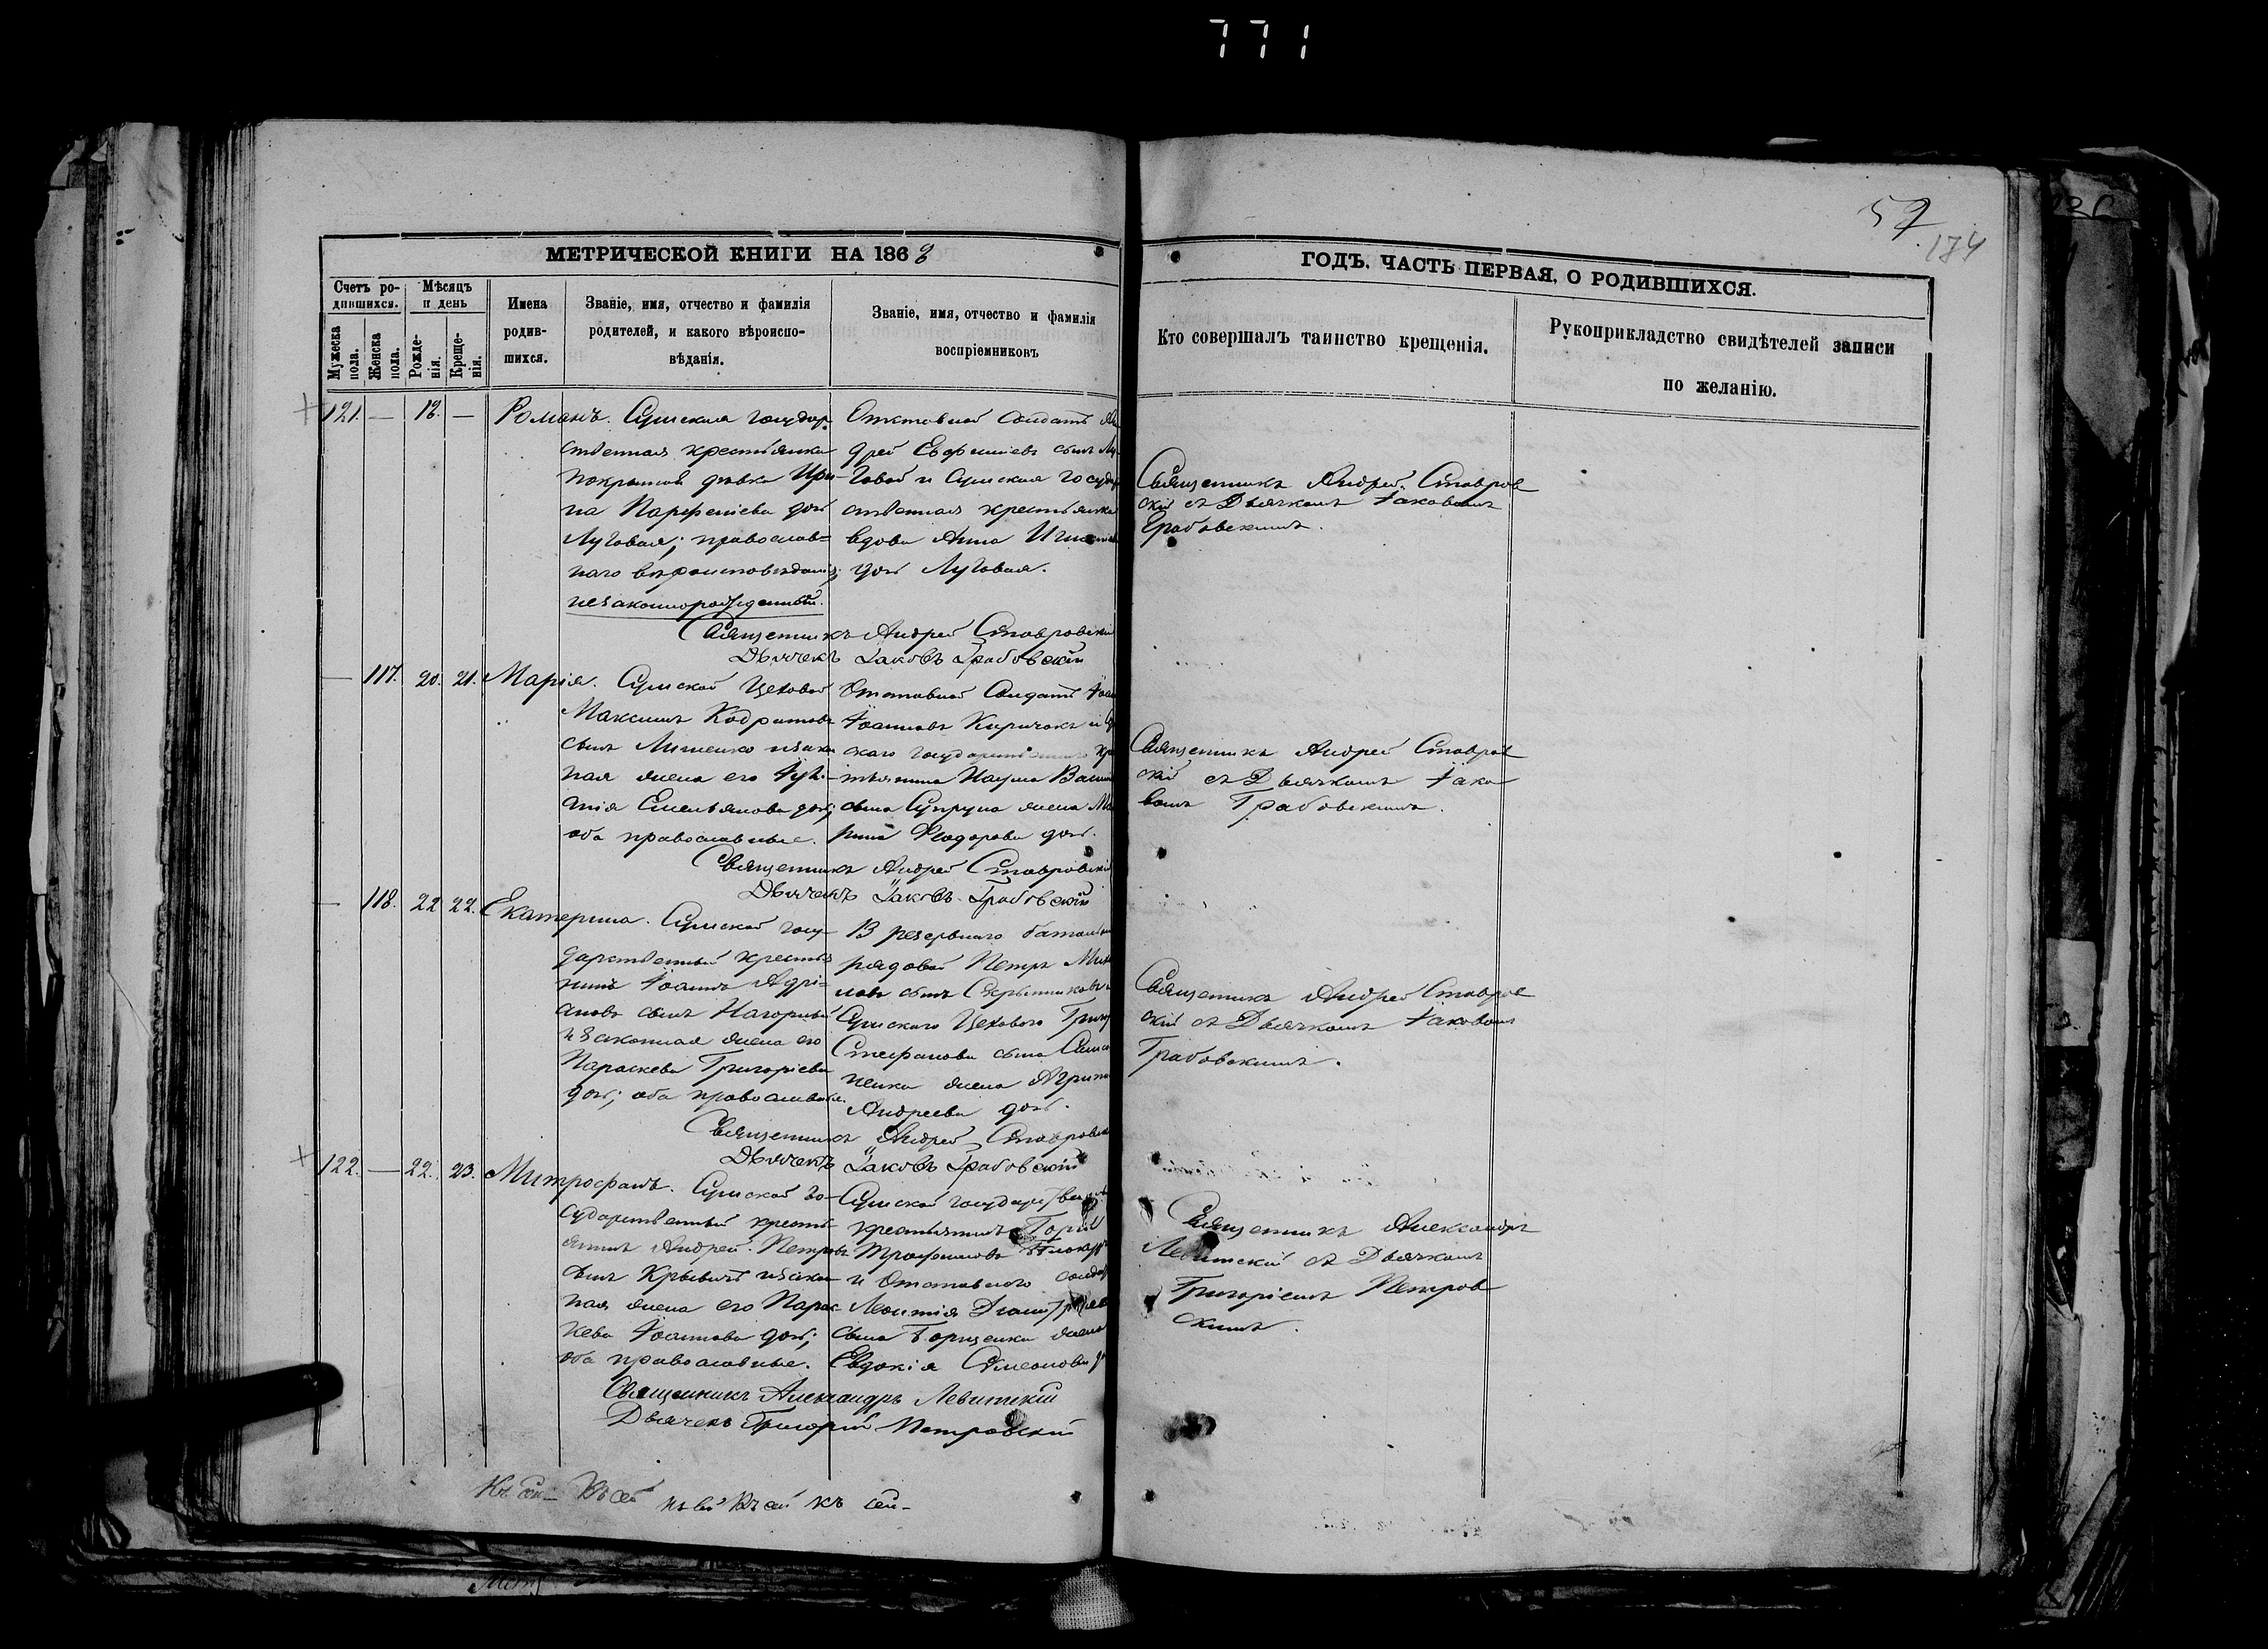 771
57
174
МЕТРИЧЕСКОЙ КНИГИ НА 1868
ГОДЪ. ЧАСТЬ ПЕРВАЯ, О РОДИВШИХСЯ.
Счетъ ро-
дившихся.
Мужеска
пола.
Женска
пола.
Мѣсяцъ
и день
Рожде-
нія.
Креще-
нія.
Имена
родив-
шихся.
Званіе, имя, отчество и фамилія
родителей, и какого вѣроиспо-
вѣданія.
Званіе, имя, отчество и фамилія
воспріемниковъ
Кто совершалъ таинство крещенія.
Рукоприкладство свидѣтелей записи
по желанію.
121. — 18. — Романъ.
Сумская государ-
ственная крестьянка
покрытая дѣвка Ири-
на Парфеніева доч
Луговая; православ=
наго вѣроисповѣданія;
незаконнорожденный.
Отставной солдатъ Ан
дрей Евфиміевъ сынъ Лу-
говой и Сумская государ
ственная крестьянка
вдова Анна
доч Луговая.
Священникъ Андрей Ставров
скій съ Дьячкомъ Іаковомъ
Грабовскимъ.
Священникъ Андрей Ставровскій
Дьячекъ Іаковъ Грабовскій
— 117. 20. 21. Марія.
Сумской Цеховой
Максимъ Кодратовъ
сынъ Лишенко и закон
ная жена его Іули-
тія Емельянова доч;
оба православные.
Отставной Солдатъ Іоан
Іоанновъ Киричокъ и Сум
скаго государственнаго кре
стьянина Наума
сына Супруна жена Ма
рина Ѳеодорова доч.
Священникъ Андрей Ставров
скій съ Дьячкомъ Іако
вомъ Грабовскимъ.
Священникъ Андрей Ставровскій
Дьячекъ Іаковъ Грабовскій
— 118. 22 22. Екатерина.
Сумской госу-
дарственный крестья
нинъ Іоаннъ Адрі-
ановъ сынъ Нагорный
и законная жена его
Параскева Григоріева
доч; оба православные.
В резервнаго баталіон
рядовой Петръ
сынъ
Сумскаго Цеховаго Григ
Стефанова сына
жена Агрип
Андреева доч.
Священникъ Андрей Ставров
скій съ Дьячкомъ Іаковомъ
Грабовскимъ.
Священникъ Андрей Ставровскі
Дьячекъ Іаковъ Грабовскій
122. — 22. 23. Митрофанъ.
Сумской го-
сударственный кресть
янинъ Андрей Петровъ
сынъ Крывичъ и закон
ная жена его Парас
кева Іоаннова доч;
оба православные.
Сумской государствен
крестьянинъ
Трофимовъ
и Отставного солдат
Леонтія Дмитріев
сына Борщенка жена
Евдокія Симеонова до
Священникъ Александръ
Левитскій съ Дьячкомъ
Григоріемъ Петров
скимъ.
Священникъ Александръ Левитскій
Дьячекъ Григорій Петровскій